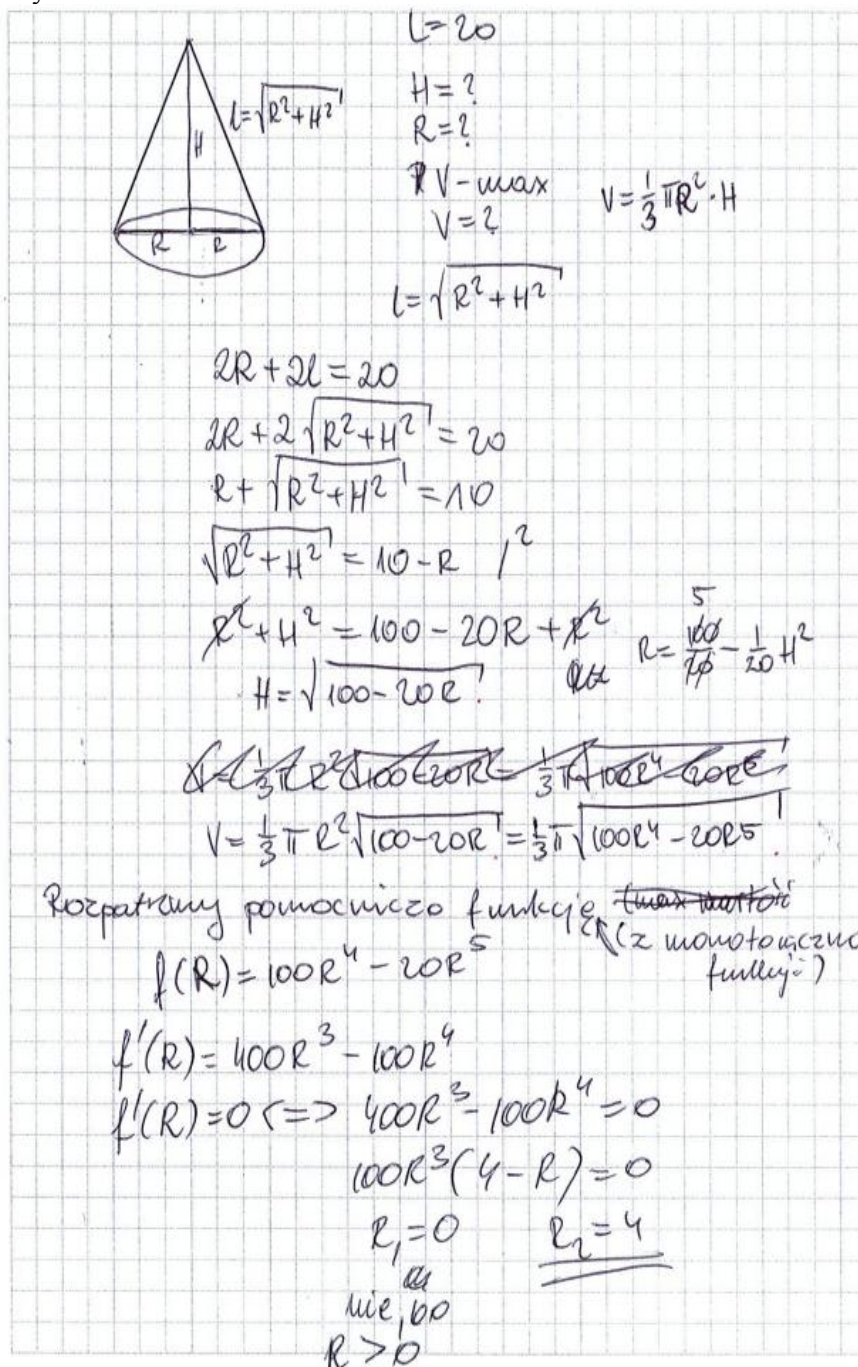 L=20
l=√(R²+H²)
H
R R
H=?
R=?
V-max
V=?
V=1/3 πR²·H
l=√(R²+H²)
2R+2l=20
2R+2√(R²+H²)=20
R+√(R²+H²)=10
√(R²+H²)=10-R /²
R²+H²=100-20R+R²
R=100/20-1/20 H²
5
H=√(100-20R)
V=1/3 π R²√(100-20R)=1/3 π√(100R⁴-20R⁵)
V=1/3 π R²√(100-20R)=1/3 π√(100R⁴-20R⁵)
Rozpatrzmy pomocniczo funkcję
(z monotoniczno
funkcji)
f(R)=100R⁴-20R⁵
f'(R)=400R³-100R⁴
f'(R)=0 <=> 400R³-100R⁴=0
100R³(4-R)=0
R₁=0 R₂=4
nie, bo
R>0